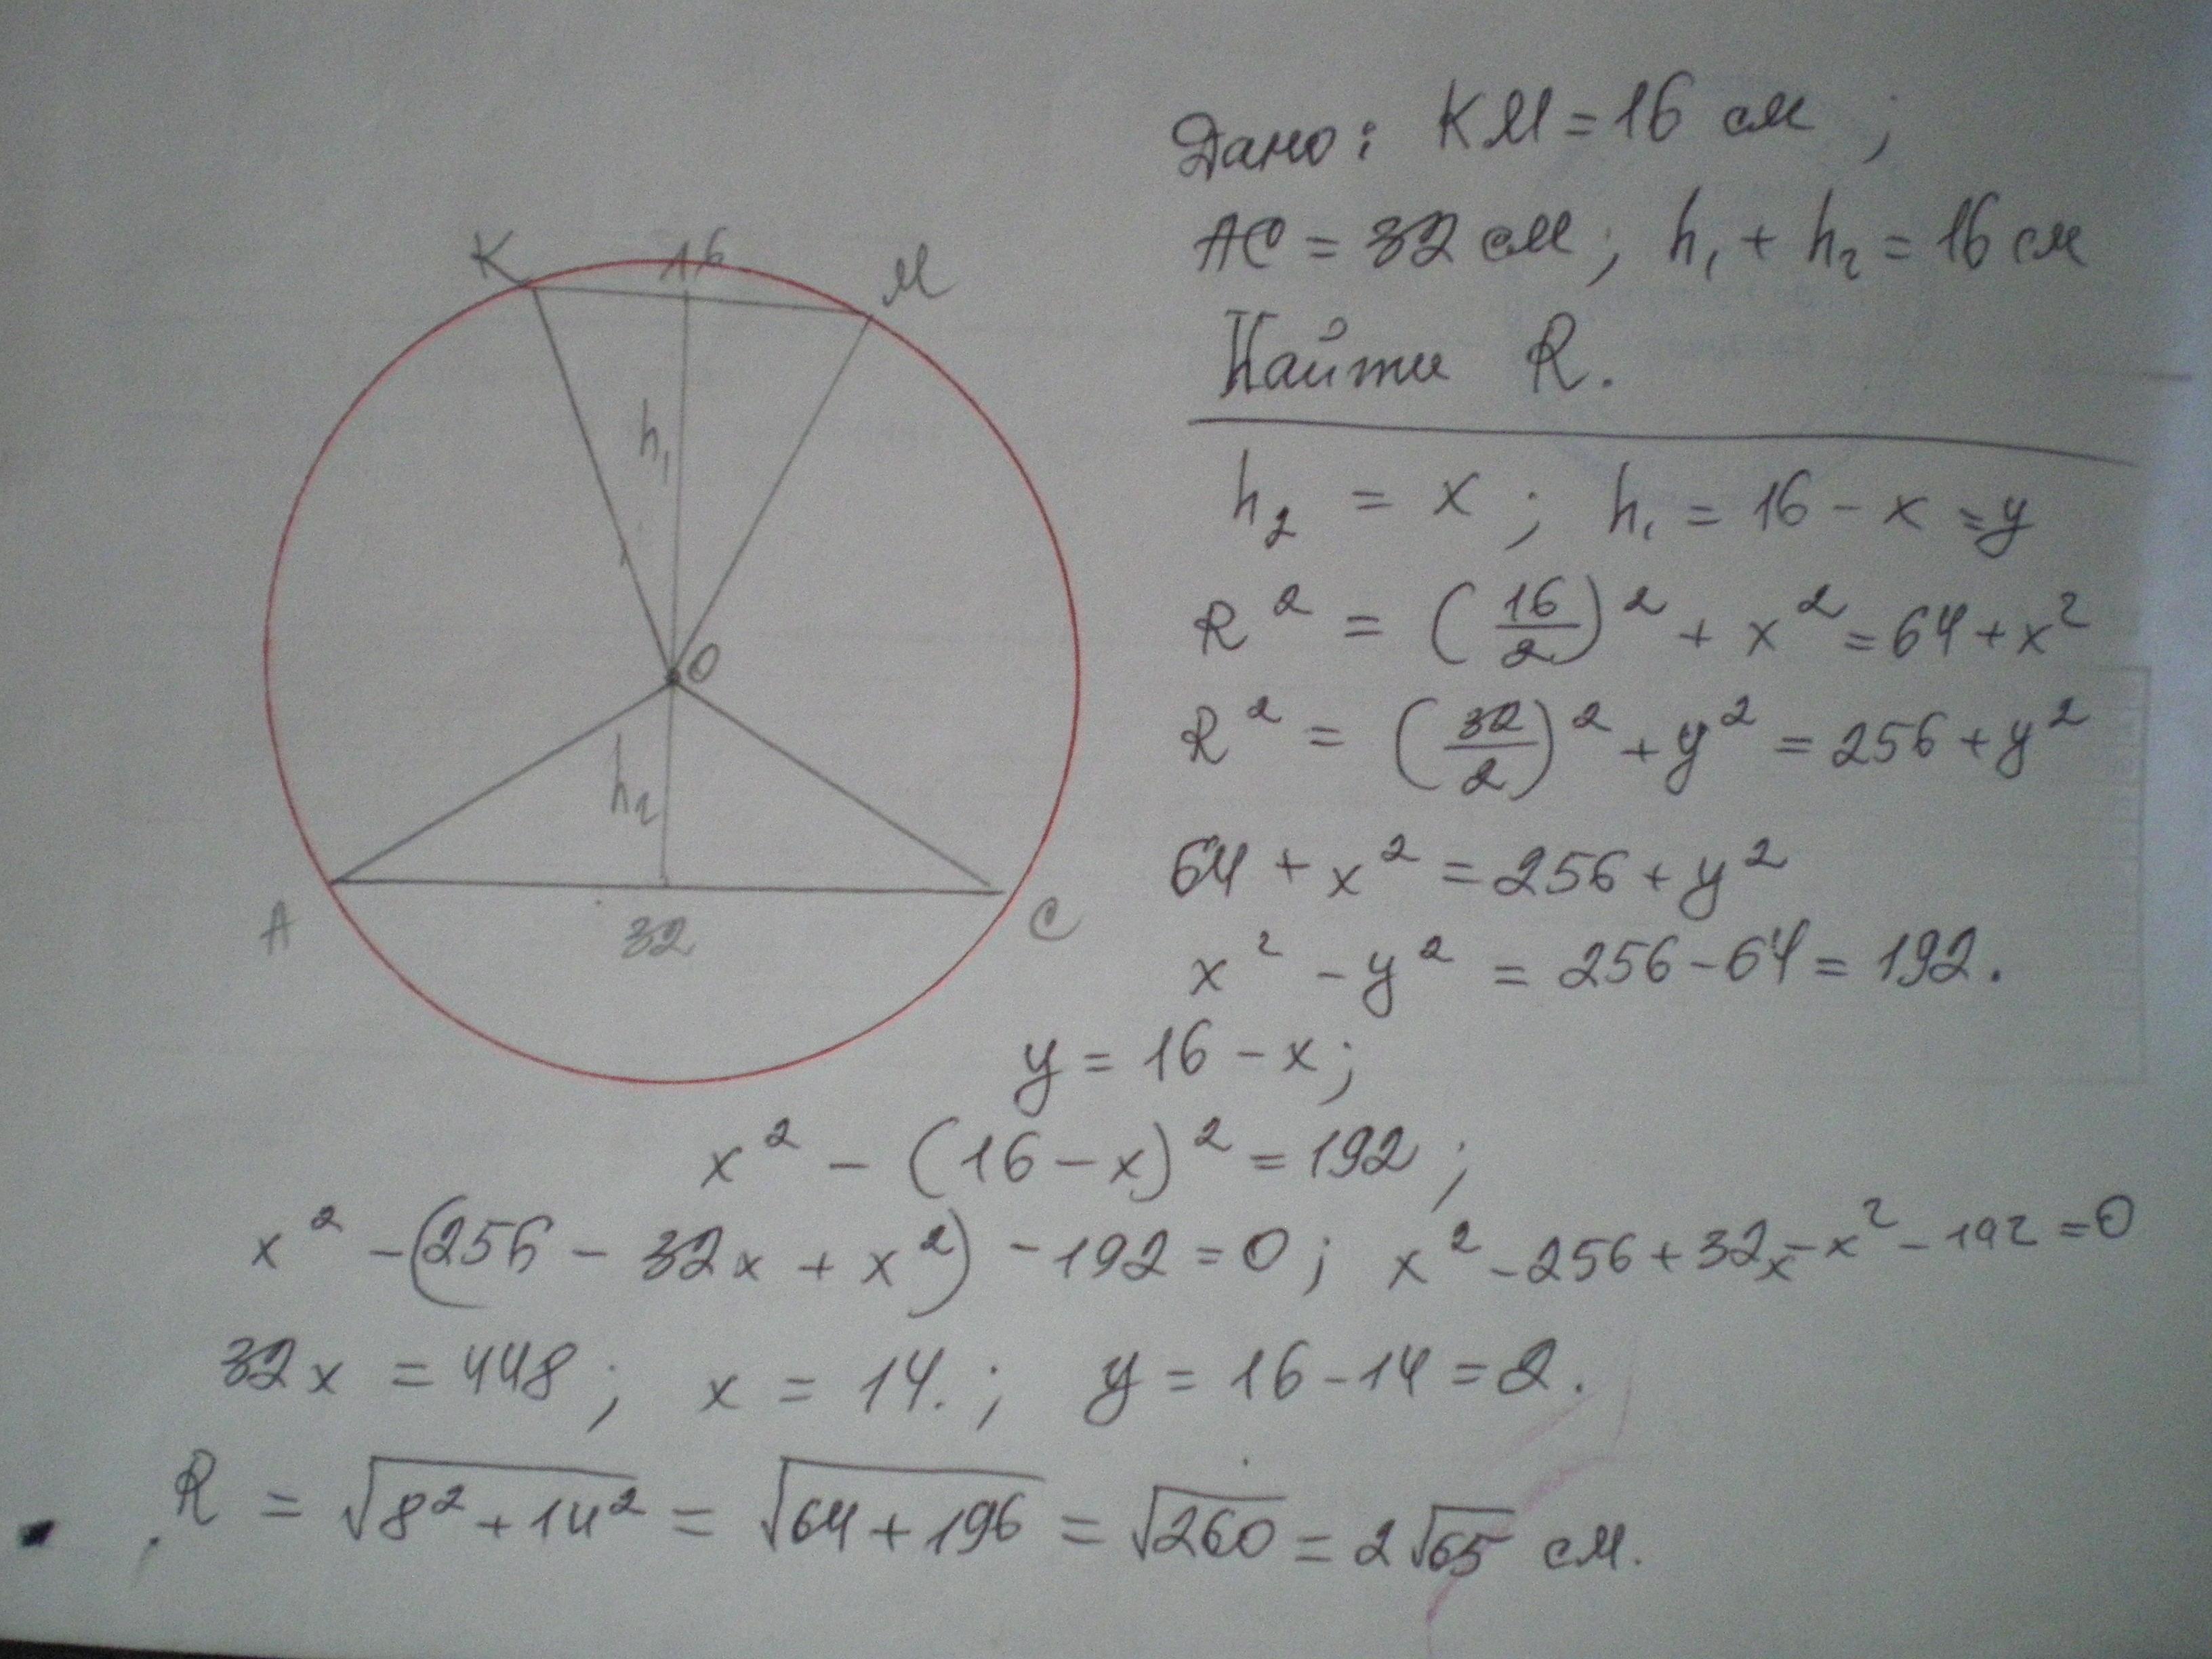 Дано: KM = 16 см ;
AC = 32 см ; h₁ + h₂ = 16 см
Найти R.
K 16 M
h₁
O
h₂
A 32 C
h₂ = x ; h₁ = 16 - x = y
R² = (16/2)² + x² = 64 + x²
R² = (32/2)² + y² = 256 + y²
64 + x² = 256 + y²
x² - y² = 256 - 64 = 192.
y = 16 - x ;
x² - (16 - x)² = 192 ;
x² - (256 - 32x + x²) - 192 = 0 ; x² - 256 + 32x - x² - 192 = 0
32x = 448 ; x = 14. ; y = 16 - 14 = 2.
R = √(8² + 14²) = √(64 + 196) = √260 = 2√65 см.